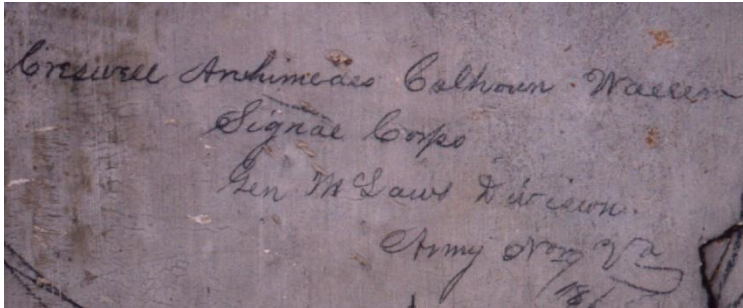 Creswell Archimedes Calhoun Waller
Signal Corps
Gen McLaws Division.
Army Nor Va